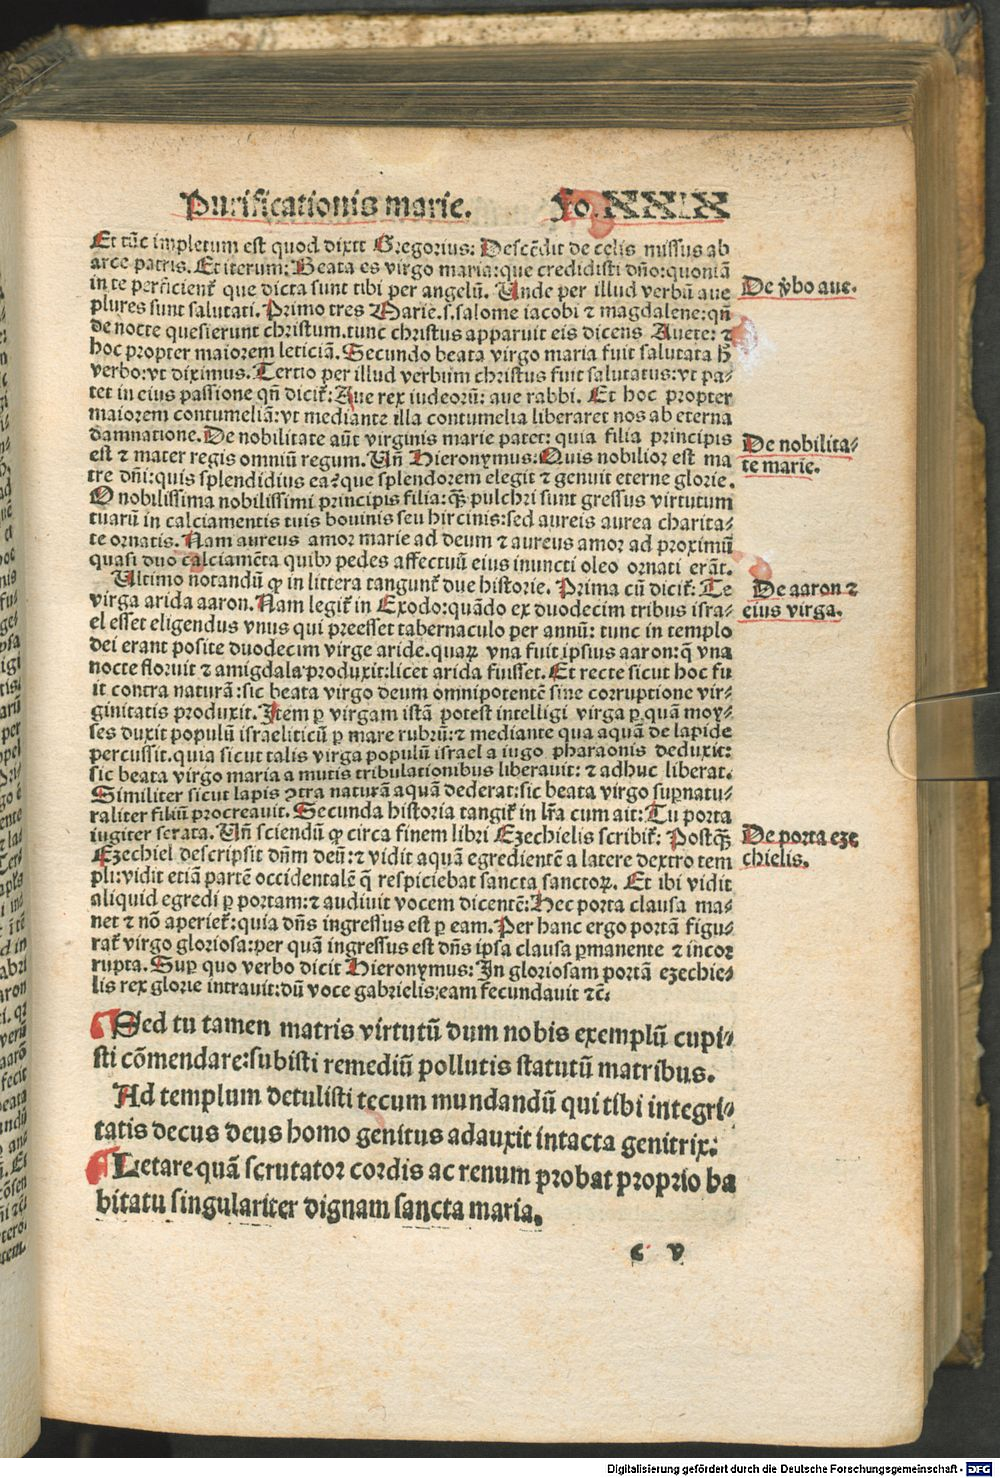 Purificationis marie. Fo. XXIX
Et tũc impletum est quod dixit Gregorius: Descẽdit de celis missus ab
arce patris. Et iterum: Beata es virgo maria: que credidisti dño: quoniã
in te perficientᷣ que dicta sunt tibi per angelũ. Unde per illud verbũ aue
De ꝟbo aue.
plures sunt salutati. Primo tres Marie. s. salome iacobi ⁊ magdalene: qñ
de nocte quesierunt christum. tunc christus apparuit eis dicens Auete: ⁊
hoc propter maiorem leticiã. Secundo beata virgo maria fuit salutata h̃
verbo: vt diximus. Tertio per illud verbum christus fuit salutatus: vt pa⸗
tet in eius passione qñ dicitᷣ: Aue rex iudeorũ: aue rabbi. Et hoc propter
maiorem contumeliã: vt mediante illa contumelia liberaret nos ab eterna
damnatione. De nobilitate aũt virginis marie patet: quia filia principis
De nobilita⸗
est ⁊ mater regis omniũ regum. Uñ Hieronymus: Quis nobilior est ma
te marie.
tre dñi: quis splendidius ea? que splendorem elegit ⁊ genuit eterne glorie.
O nobilissima nobilissimi principis filia: q̃ꝫ pulchri sunt gressus virtutum
tuarũ in calciamentis tuis bouinis seu hircinis: sed aureis aurea charita⸗
te ornatis. Nam aureus amor marie ad deum ⁊ aureus amor ad proximũ
quasi duo calciamẽta quibꝰ pedes affectuũ eius inuncti oleo ornati erãt.
Ultimo notandũ ꝙ in littera tanguntᷣ due historie. Prima cũ dicitᷣ: Te
De aaron ⁊
virga arida aaron. Nam legitᷣ in Exodo: quãdo ex duodecim tribus isra⸗
eius virga.
el esset eligendus vnus qui preesset tabernaculo per annũ: tunc in templo
dei erant posite duodecim virge aride. quaꝝ vna fuit ipsius aaron: q̃ vna
nocte floruit ⁊ amigdala produxit: licet arida fuisset. Et recte sicut hoc fu
it contra naturã: sic beata virgo deum omnipotentẽ sine corruptione vir⸗
ginitatis produxit. Item ꝑ virgam istã potest intelligi virga ꝑ quã moy⸗
ses duxit populũ israeliticũ ꝑ mare rubrũ: ⁊ mediante qua aquã de lapide
percussit. quia sicut talis virga populũ israel a iugo pharaonis deduxit:
sic beata virgo maria a mutis tribulationibus liberauit: ⁊ adhuc liberat.
Similiter sicut lapis ꝯtra naturã aquã dederat: sic beata virgo suꝑnatu⸗
raliter filiũ procreauit. Secunda historia tangitᷣ in lr̃a cum ait: Tu porta
iugiter serata. Uñ sciendũ ꝙ circa finem libri Ezechielis scribitᷣ: Postq̃ꝫ
De porta eze
Ezechiel descripsit dñm deũ: ⁊ vidit aquã egredientẽ a latere dextro tem
chielis.
pli: vidit etiã partẽ occidentalẽ q̃ respiciebat sancta sanctoꝝ. Et ibi vidit
aliquid egredi ꝑ portam: ⁊ audiuit vocem dicentẽ: Hec porta clausa ma⸗
net ⁊ nõ aperietᷣ: quia dñs ingressus est ꝑ eam. Per hanc ergo portã figu⸗
ratᷣ virgo gloriosa: per quã ingressus est dñs ipsa clausa ꝑmanente ⁊ incor
rupta. Suꝑ quo verbo dicit Hieronymus: In gloriosam portã ezechie⸗
lis rex glorie intrauit: dũ voce gabrielis: eam fecundauit ⁊c̃.
Sed tu tamen matris virtutũ dum nobis exemplũ cupi⸗
sti cõmendare: subisti remediũ pollutis statutũ matribus.
Ad templum detulisti tecum mundandũ qui tibi integri⸗
tatis decus deus homo genitus adauxit intacta genitrix:
Letare quã scrutator cordis ac renum probat proprio ha
bitatu singulariter dignam sancta maria.
c v
Digitalisierung gefördert durch die Deutsche Forschungsgemeinschaft - DFG